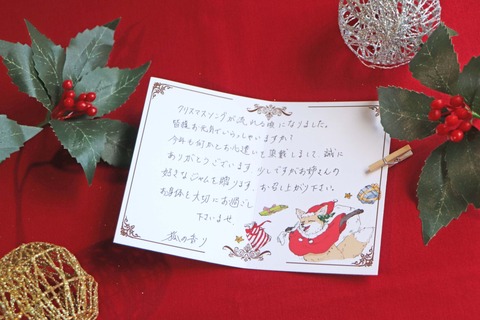 クリスマスソングが流れる頃になりました。
皆様お元気でいらっしゃいますか?
今年も何かとお心遣いを頂戴しまして、誠に
ありがとうございます。少しですがお姉さんの
好きなジャムを贈ります。お召し上がり下さい。
お身体を大切にお過ごし
下さいませ
狐の香り